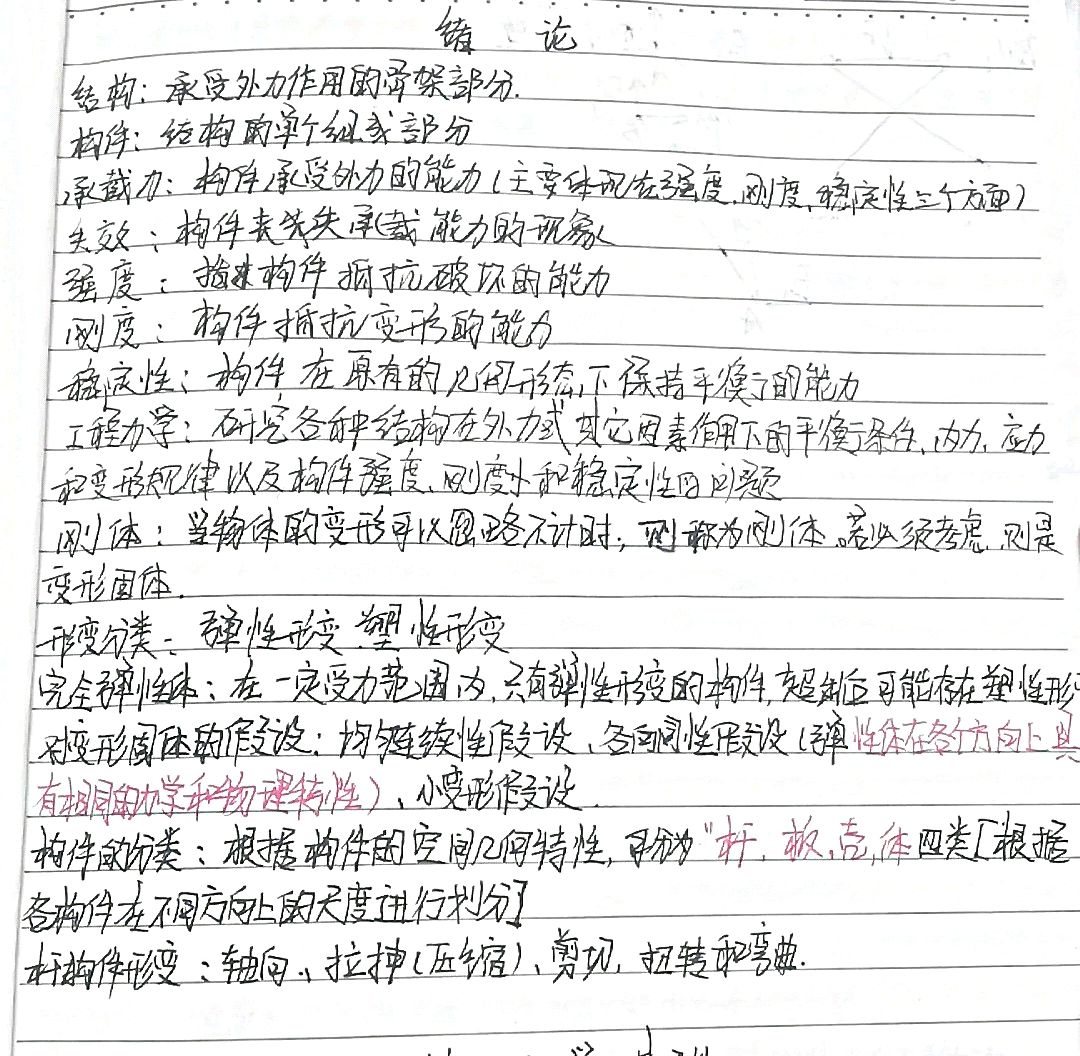 绪 论
结构：承受外力作用的骨架部分.
构件：结构的单个组成部分
承载力：构件承受外力的能力（主要体现在强度、刚度、稳定性三个方面）
失效：构件丧失承载能力的现象
强度：指构件抵抗破坏的能力
刚度：构件抵抗变形的能力
稳定性：构件在原有的几何形态下保持平衡的能力
工程力学：研究各种结构在外力或其它因素作用下的平衡条件、内力、应力
和变形规律以及构件强度、刚度和稳定性的问题
刚体：当物体的变形可以忽略不计时，则称为刚体。若必须考虑，则是
变形固体.
形变分类：弹性形变、塑性形变
完全弹性体：在一定受力范围内，只有弹性形变的构件，超过后可能存在塑性形
对变形固体的假设：均匀连续性假设、各向同性假设（弹性体在各个方向上具
有相同的力学和物理特性）、小变形假设.
构件的分类：根据构件的空间几何特性，可分为"杆、板、壳、体四类[根据
各构件在不同方向上的尺度进行划分]
杆构件形变：轴向、拉伸（压缩）、剪切、扭转和弯曲.